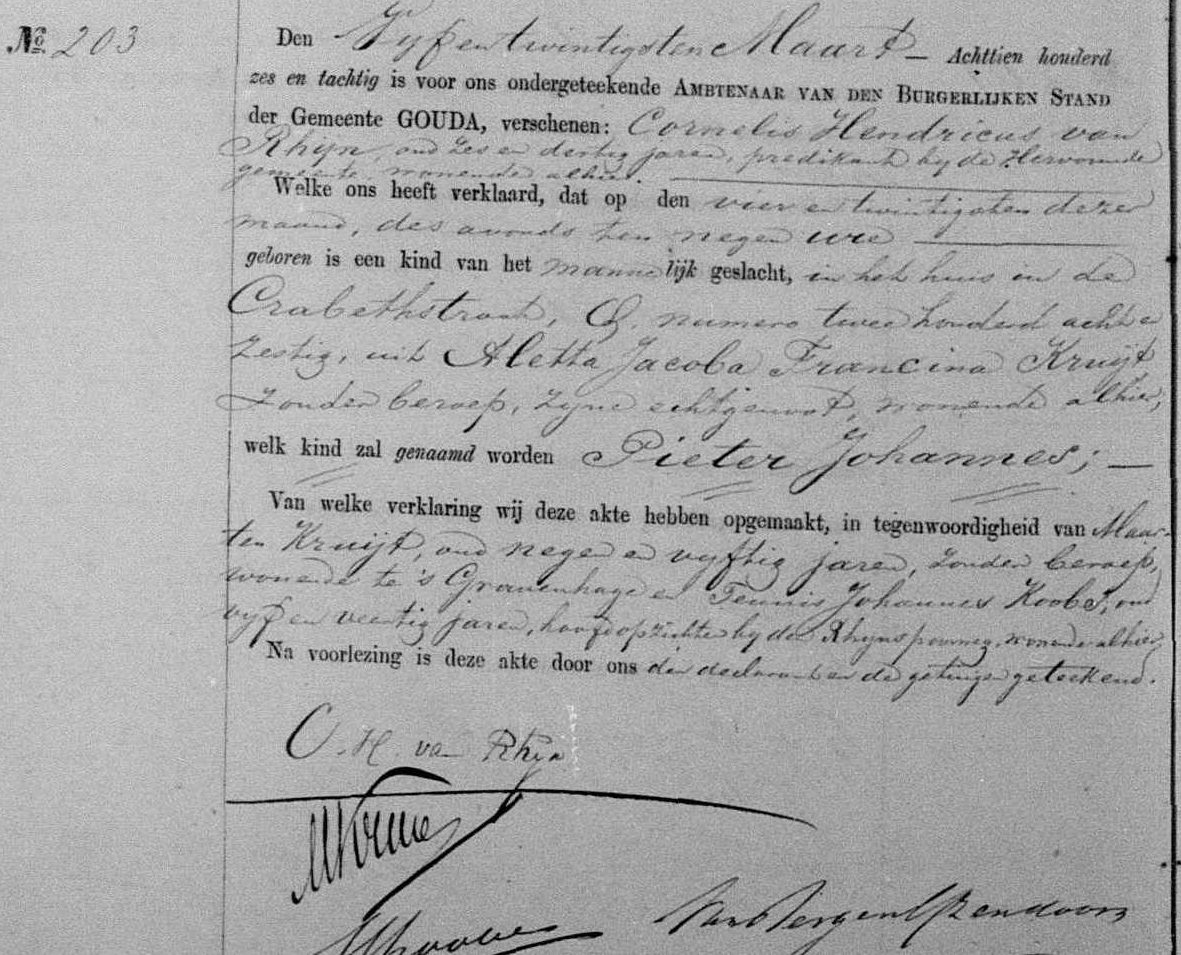 No. 203
Den Vyf en twintigsten Maart – Achttien honderd
zes en tachtig is voor ons ondergeteekende AMBTENAAR VAN DEN BURGERLIJKEN STAND
der Gemeente GOUDA, verschenen: Cornelis Hendricus van
Rhijn, oud zes en dertig jaren, predikant by de Hervormde
gemeente, wonende alhier.
Welke ons heeft verklaard, dat op den vier en twintigsten dezer
maand, des avonds ten negen ure
geboren is een kind van het mannelijk geslacht, in het huis in de
Crabethstraat, Q. numero twee honderd acht en
zestig, uit Aletta Jacoba Francina Kruijt,
zonder beroep, zyne echtgenoot, wonende alhier,
welk kind zal genaamd worden Pieter Johannes; –
Van welke verklaring wij deze akte hebben opgemaakt, in tegenwoordigheid van Maar-
ten Kruijt, oud negen en vyftig jaren, zonder beroep,
wonende te 's Gravenhage en Teunis Johannes Koobs, oud
vyf en veertig jaren, hoofdopzichter by den Rhynspoorweg, wonende alhier,
Na voorlezing is deze akte door ons den declarant en de getuigen geteekend.
C. H. van Rhijn
Van Bergen IJzendoorn